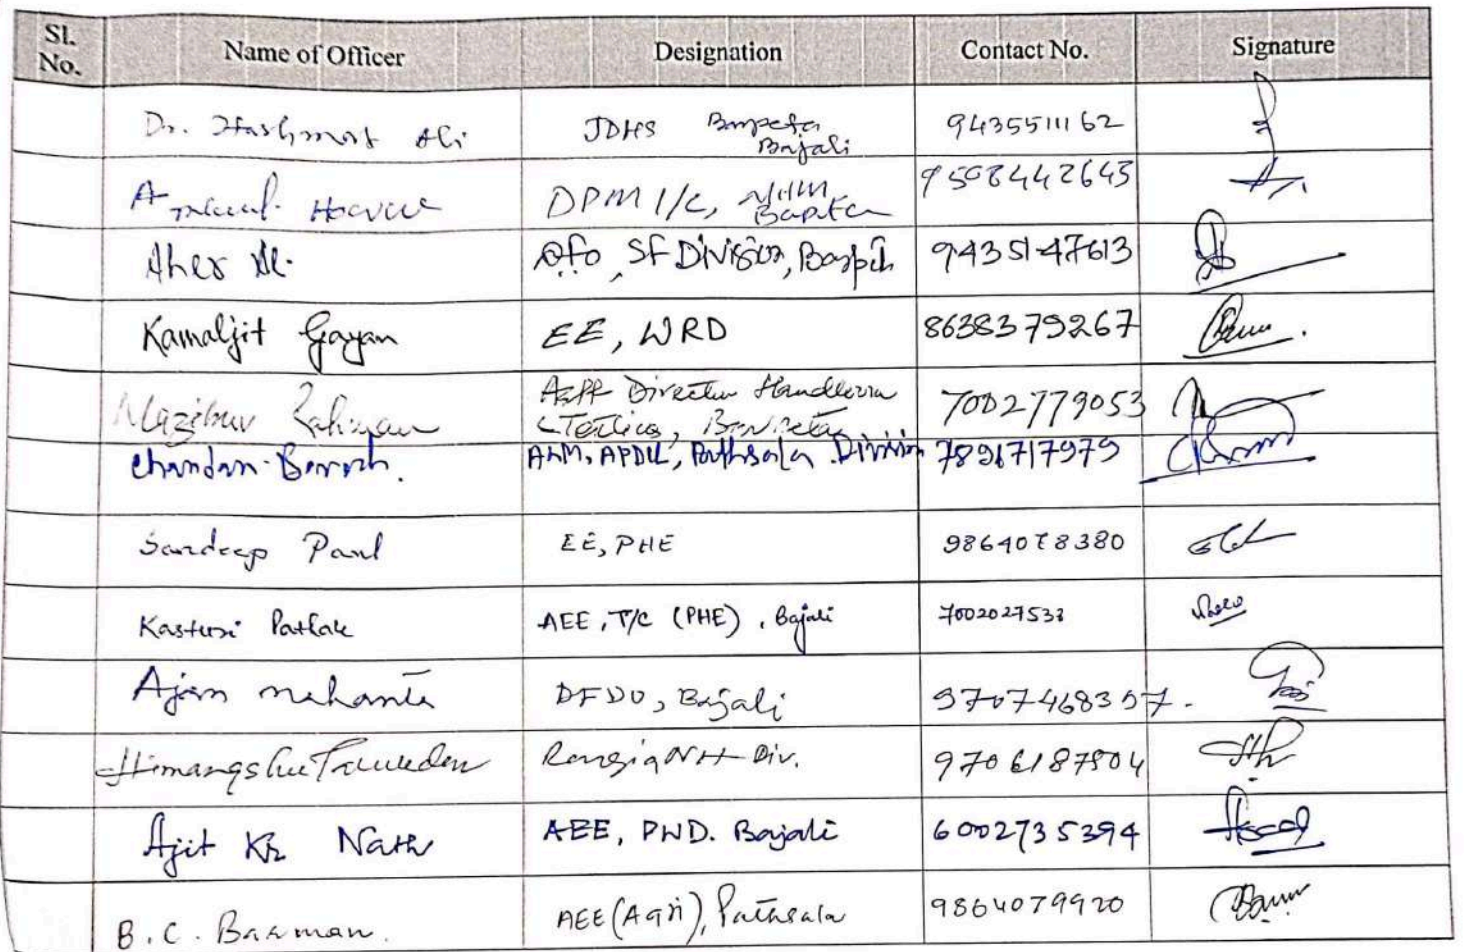 Sl. No. Name of Officer Designation Contact No. Signature
Dr. Hashmat Ali JDHS Barpeta Bajali 9435511162
DPM I/C, NHM Bapeta
DFO, SF Division, Barpeta 9435147613
Kamaljit Gayan EE, WRD 8638379267
Mazibur Rahman Asstt Director Handloom & Textiles, Barpeta 7002779053
Chandan Borah. AGM, APDCL, Pathsala Division
Sandeep Paul EE, PHE 9864078380
Kasturi Pathak AEE, T/C (PHE), Bajali
Ajan Mahanta DFDO, Bajali
Himangshu Rangia NH Div.
Ajit Kr Nath AEE, PWD. Bajali 6002735394
B.C. Barman. AEE (Agri), Pathsala 9864079920